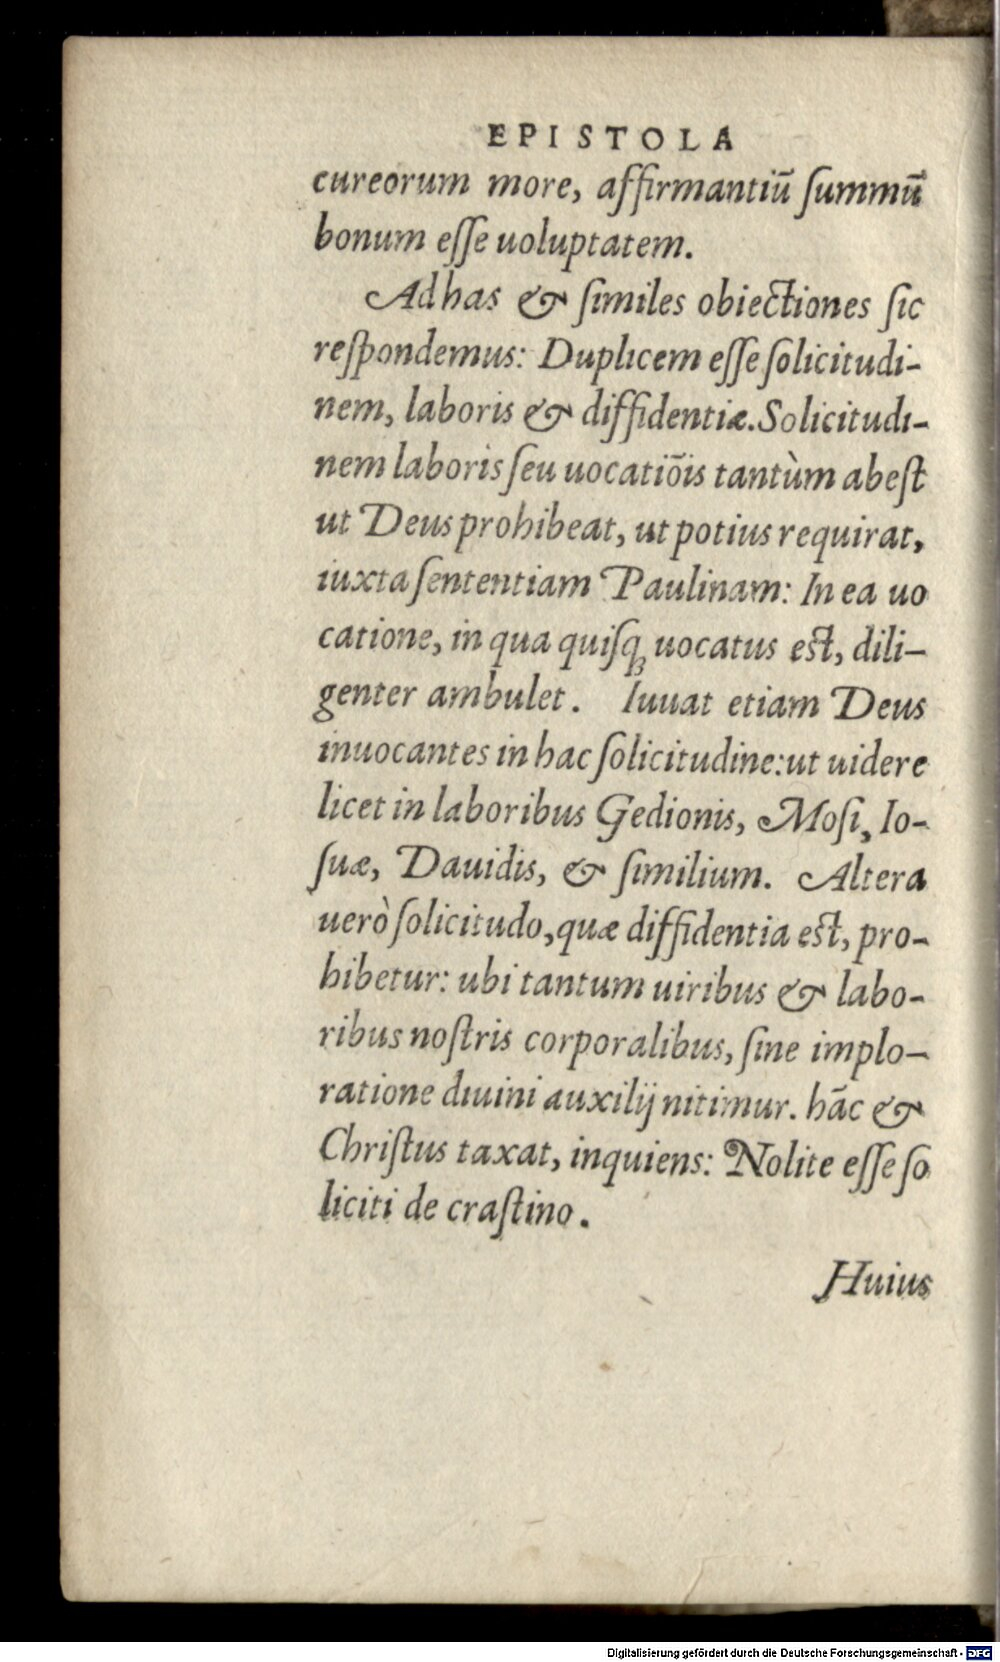 EPISTOLA
cureorum more, affirmantiū ſummū
bonum eſſe uoluptatem.
Ad has & ſimiles obiectiones ſic
reſpondemus: Duplicem eſſe ſolicitudi-
nem, laboris & diffidentiæ. Solicitudi-
nem laboris ſeu uocatiõis tantùm abeſt
ut Deus prohibeat, ut potius requirat,
iuxta ſententiam Paulinam: In ea uo
catione, in qua quiſqꝫ uocatus eſt, dili-
genter ambulet. Iuuat etiam Deus
inuocantes in hac ſolicitudine: ut uidere
licet in laboribus Gedionis, Moſi, Io-
ſuæ, Dauidis, & ſimilium. Altera
uerò ſolicitudo, quæ diffidentia eſt, pro-
hibetur: ubi tantum uiribus & labo-
ribus noſtris corporalibus, ſine implo-
ratione diuini auxilij nitimur. hāc &
Chriſtus taxat, inquiens: Nolite eſſe ſo
liciti de craſtino.
Huius
Digitalisierung gefördert durch die Deutsche Forschungsgemeinschaft - DFG